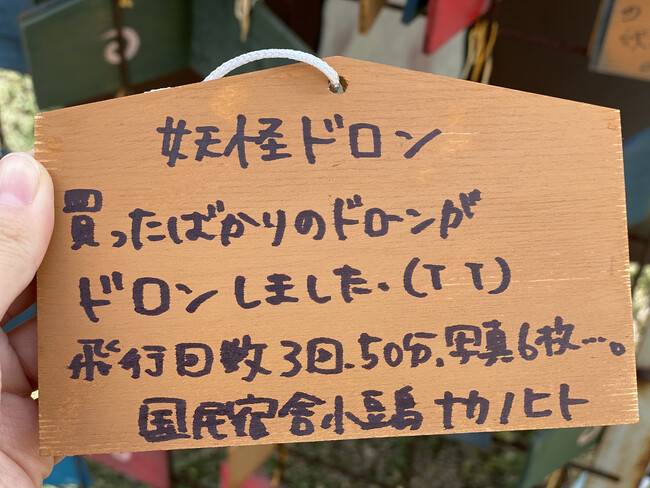 妖怪ドロン
買ったばかりのドローンが
ドロンしました.(TT)
飛行回数3回、50分、写真6枚…。
国民宿舎小豆島ナカノヒト